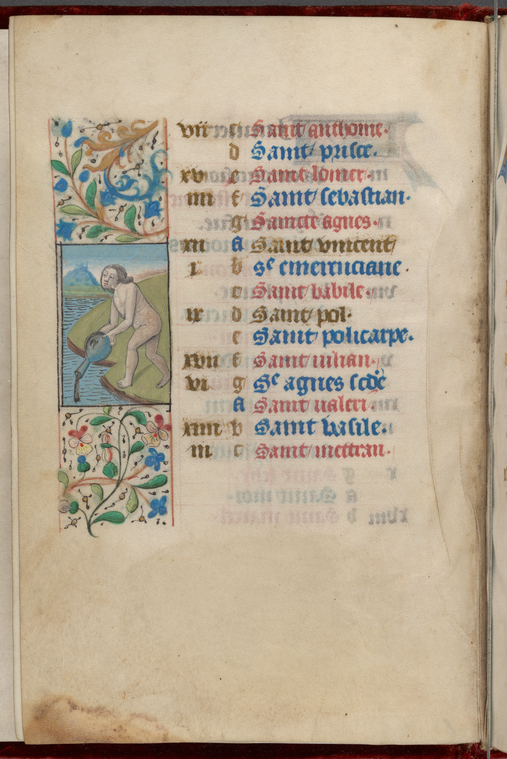 vii c Saint anthoine.
d Saint prisce.
xv e Saint lomer.
iiii f Saint sebastian.
g Saincte agnes.
xii A Saint vincent
i b Se emerenciane.
c Saint babile.
ix d Saint pol.
e Saint policarpe.
xvii f Saint iulian.
vi g Se agnes scde
A Saint valeri.
xiiii b Saint basile.
iii c Saint mettran.